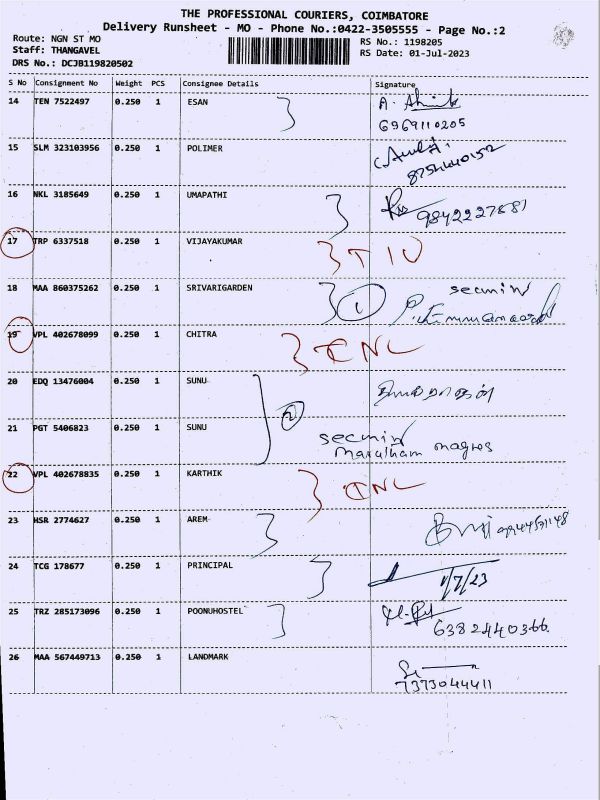 THE PROFESSIONAL COURIERS, COIMBATORE
Delivery Runsheet - MO - Phone No.:0422-3505555 - Page No.:2
Route: NGN ST MO
RS No.: 1198205
Staff: THANGAVEL
RS Date: 01-Jul-2023
DRS No.: DCJB119820502
S No Consignment No Weight PCS Consignee Details Signature
14 TEN 7522497 0.250 1 ESAN
6969110205
15 SLM 323103956 0.250 1 POLIMER
16 NKL 3185649 0.250 1 UMAPATHI
17 TRP 6337518 0.250 1 VIJAYAKUMAR
18 MAA 860375262 0.250 1 SRIVARIGARDEN 1
19 VPL 402678099 0.250 1 CHITRA
20 EDQ 13476004 0.250 1 SUNU
2
21 PGT 5406823 0.250 1 SUNU
22 VPL 402678835 0.250 1 KARTHIK
23 HSR 2774627 0.250 1 AREM
24 TCG 178677 0.250 1 PRINCIPAL
1/7/23
25 TRZ 285173096 0.250 1 POONUHOSTEL
6382440366
26 MAA 567449713 0.250 1 LANDMARK
7373044411